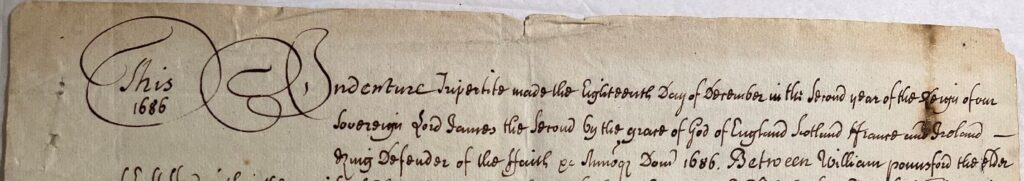 This Indenture Tripertite made the Eighteenth Day of December in the Second year of the Reign of our
1686
Sovereign Lord James the Second by the grace of God of England Scotland ffrance and Ireland
King Defender of the ffaith &c Annoq Dom 1686. Between William pounsford the elder